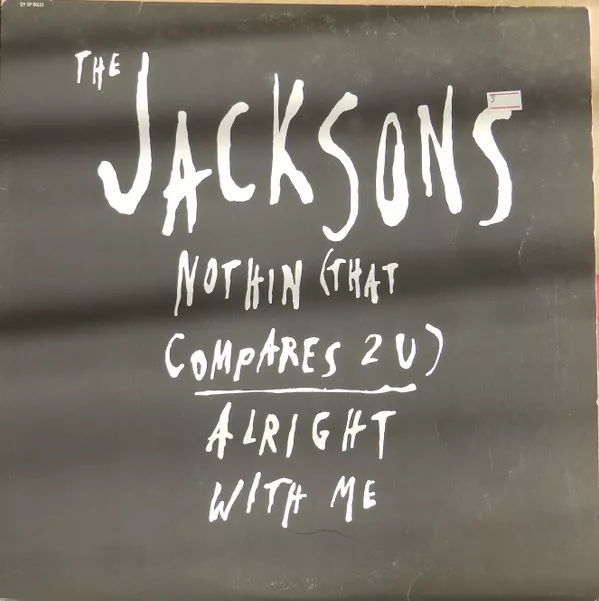 THE
JACKSONS
NOTHIN (THAT
COMPARES 2 U)
ALRIGHT
WITH ME